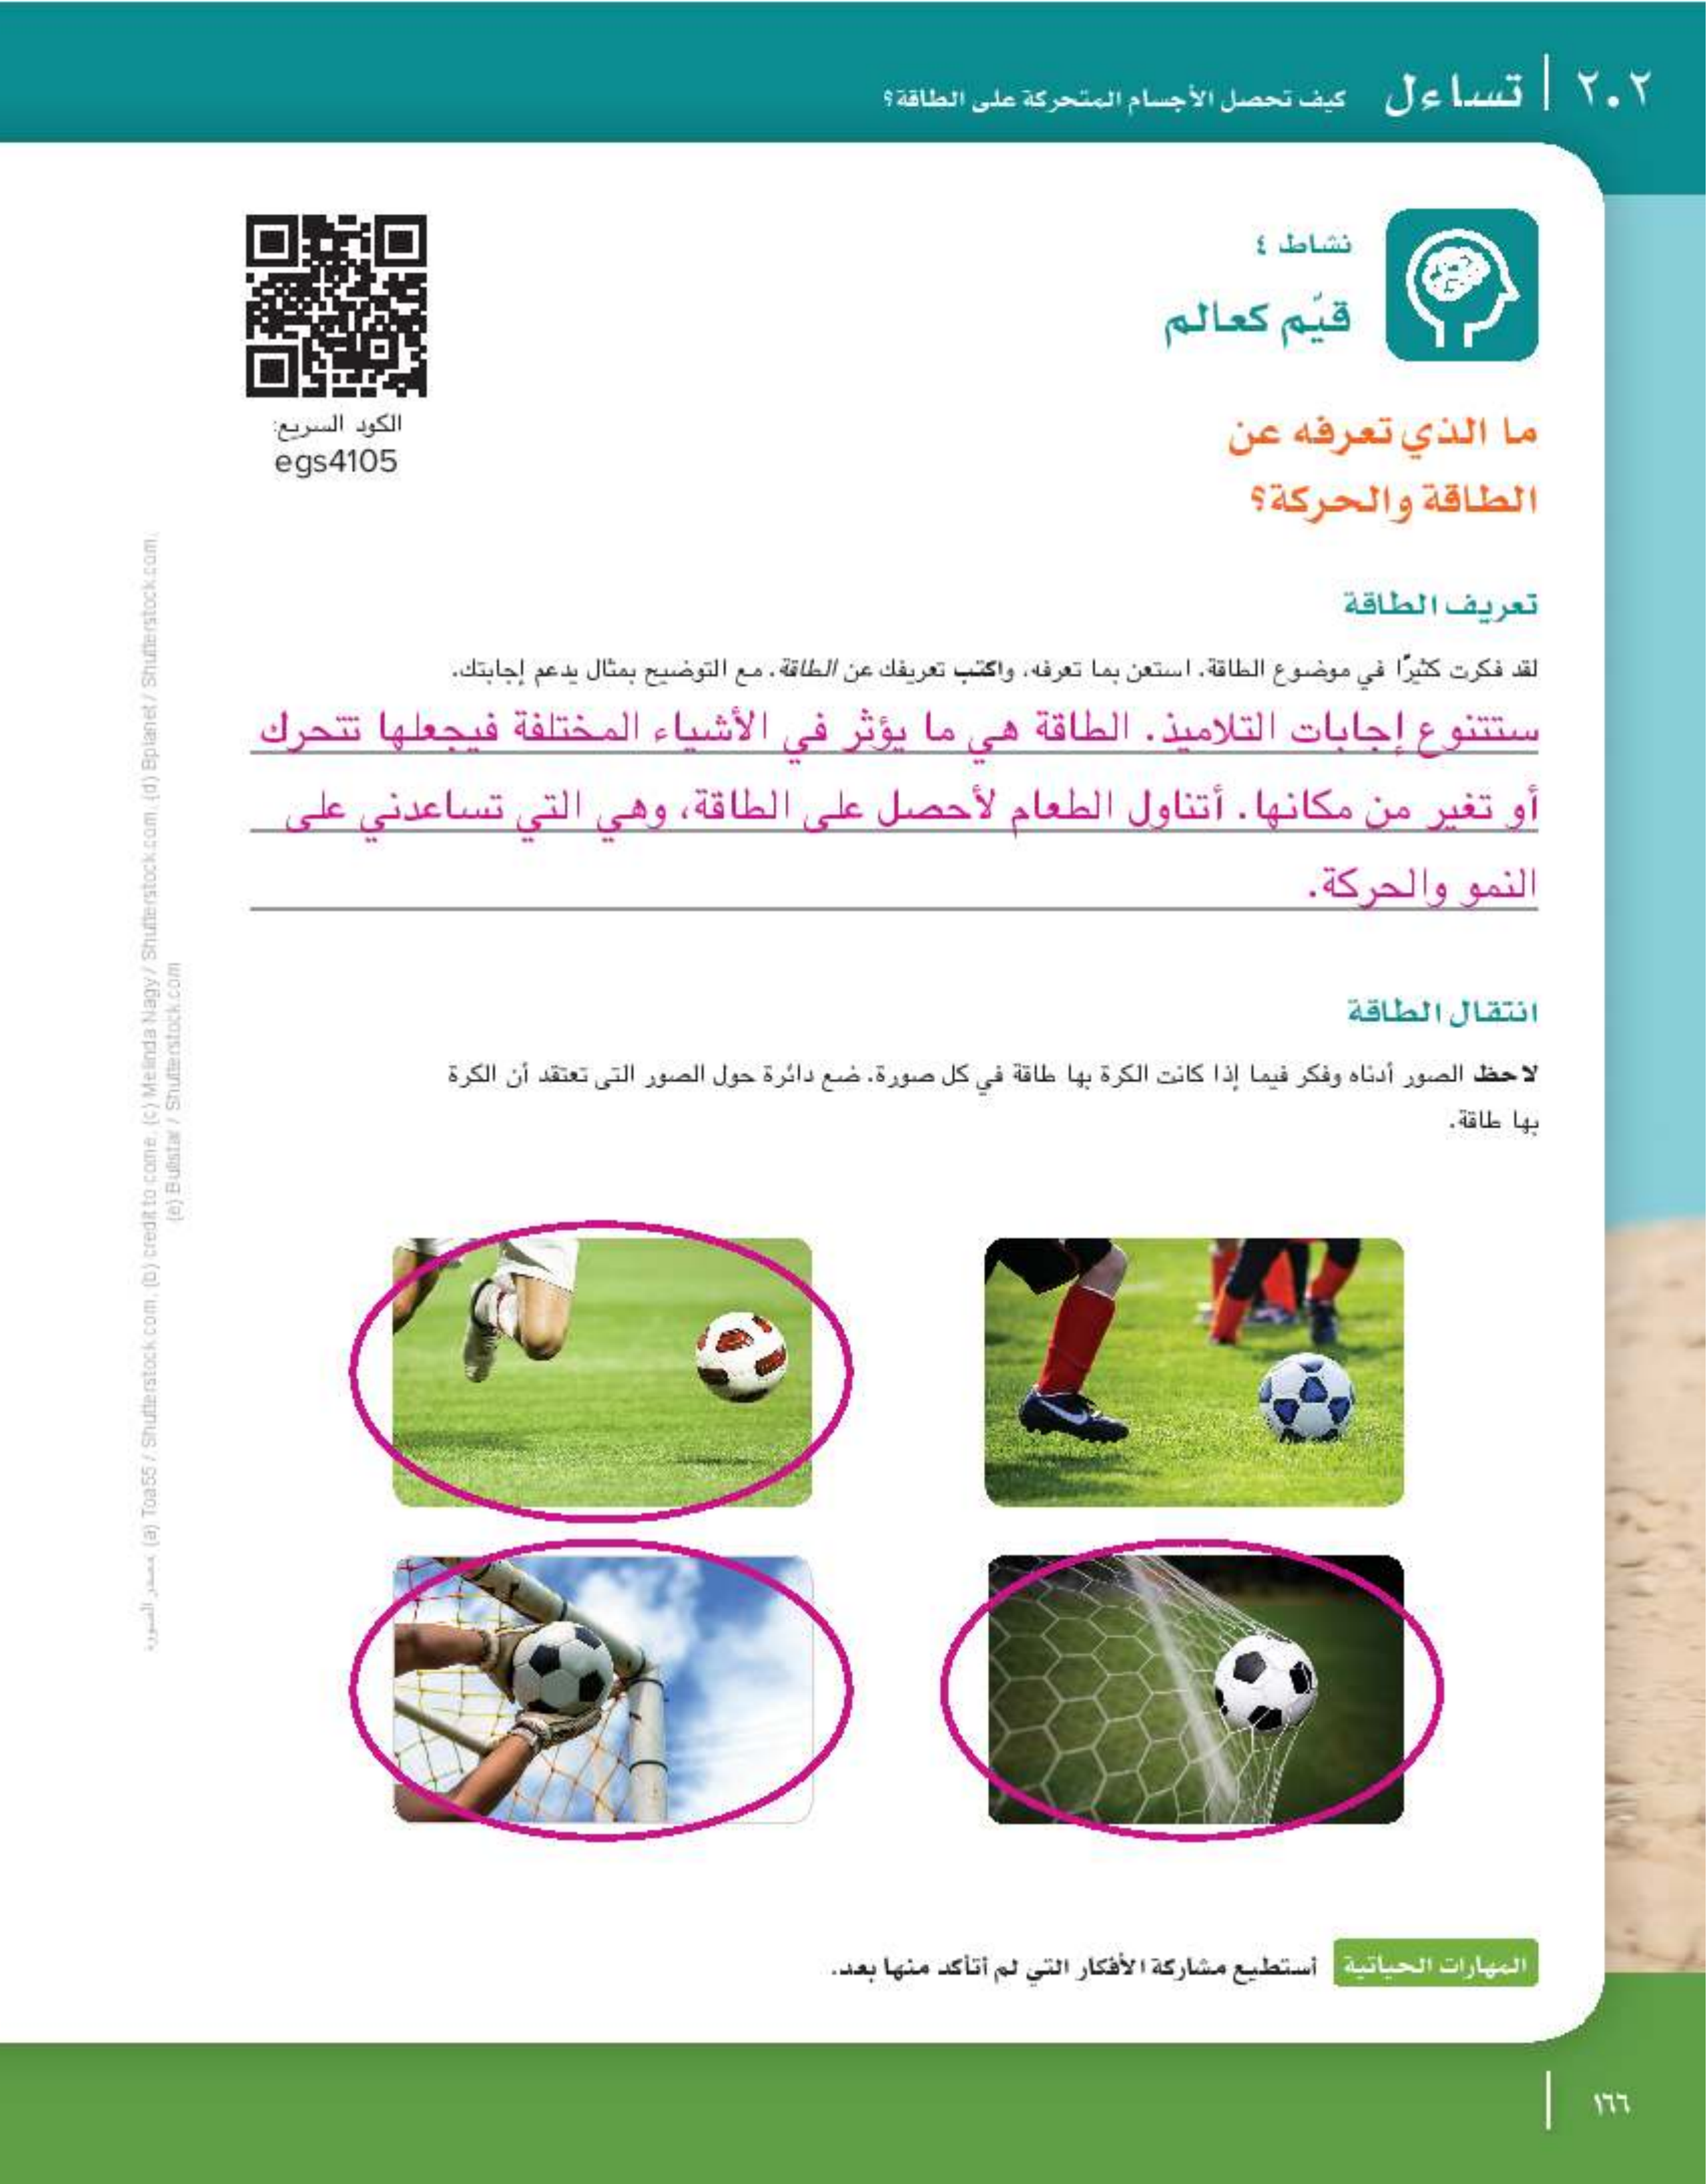 ٢.٢ | تساءل كيف تحصل الأجسام المتحركة على الطاقة؟
نشاط ٤
قيّم كعالم
الكود السريع:
egs4105
ما الذي تعرفه عن
الطاقة والحركة؟
تعريف الطاقة
لقد فكرت كثيرًا في موضوع الطاقة. استعن بما تعرفه، واكتب تعريفك عن الطاقة. مع التوضيح بمثال يدعم إجابتك.
ستتنوع إجابات التلاميذ. الطاقة هي ما يؤثر في الأشياء المختلفة فيجعلها تتحرك
أو تغير من مكانها. أتناول الطعام لأحصل على الطاقة، وهي التي تساعدني على
النمو والحركة.
انتقال الطاقة
لاحظ الصور أدناه وفكر فيما إذا كانت الكرة بها طاقة في كل صورة. ضع دائرة حول الصور التي تعتقد أن الكرة
بها طاقة.
المهارات الحياتية أستطيع مشاركة الأفكار التي لم أتأكد منها بعد.
مصدر الصورة: (a) Toa55 / Shutterstock.com, (b) credit to come, (c) Melinda Nagy / Shutterstock.com, (d) Bplanet / Shutterstock.com,
(e) Bullstar / Shutterstock.com
١٦٦